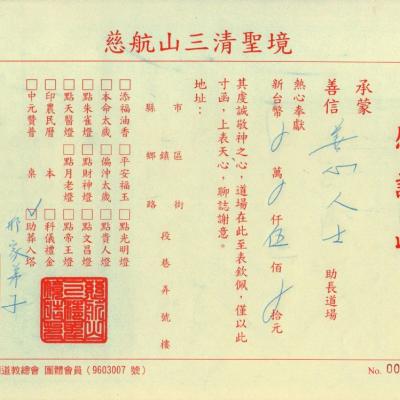 慈航山三清聖境
感謝
承蒙
善信 善心人士 助長道場
熱心奉獻
新台幣 萬 仟伍佰 拾元
其虔誠敬神之心，道場在此至表欽佩，僅以此
寸函，上表天心，聊誌謝意。
地址：
縣 市
鄉鎮區
路 街
段 巷 弄 號 樓
□添福油香 □平安福玉 □點光明燈
□本命太歲 □偏沖太歲 □點貴人燈
□點朱雀燈 □點財神燈 □點文昌燈
□點天醫燈 □點月老燈 □點帝王燈
□印農民曆 本 □科儀禮金
□中元贊普 桌 ☑助葬入塔
道教總會 團體會員 (9603007 號)
No. 00